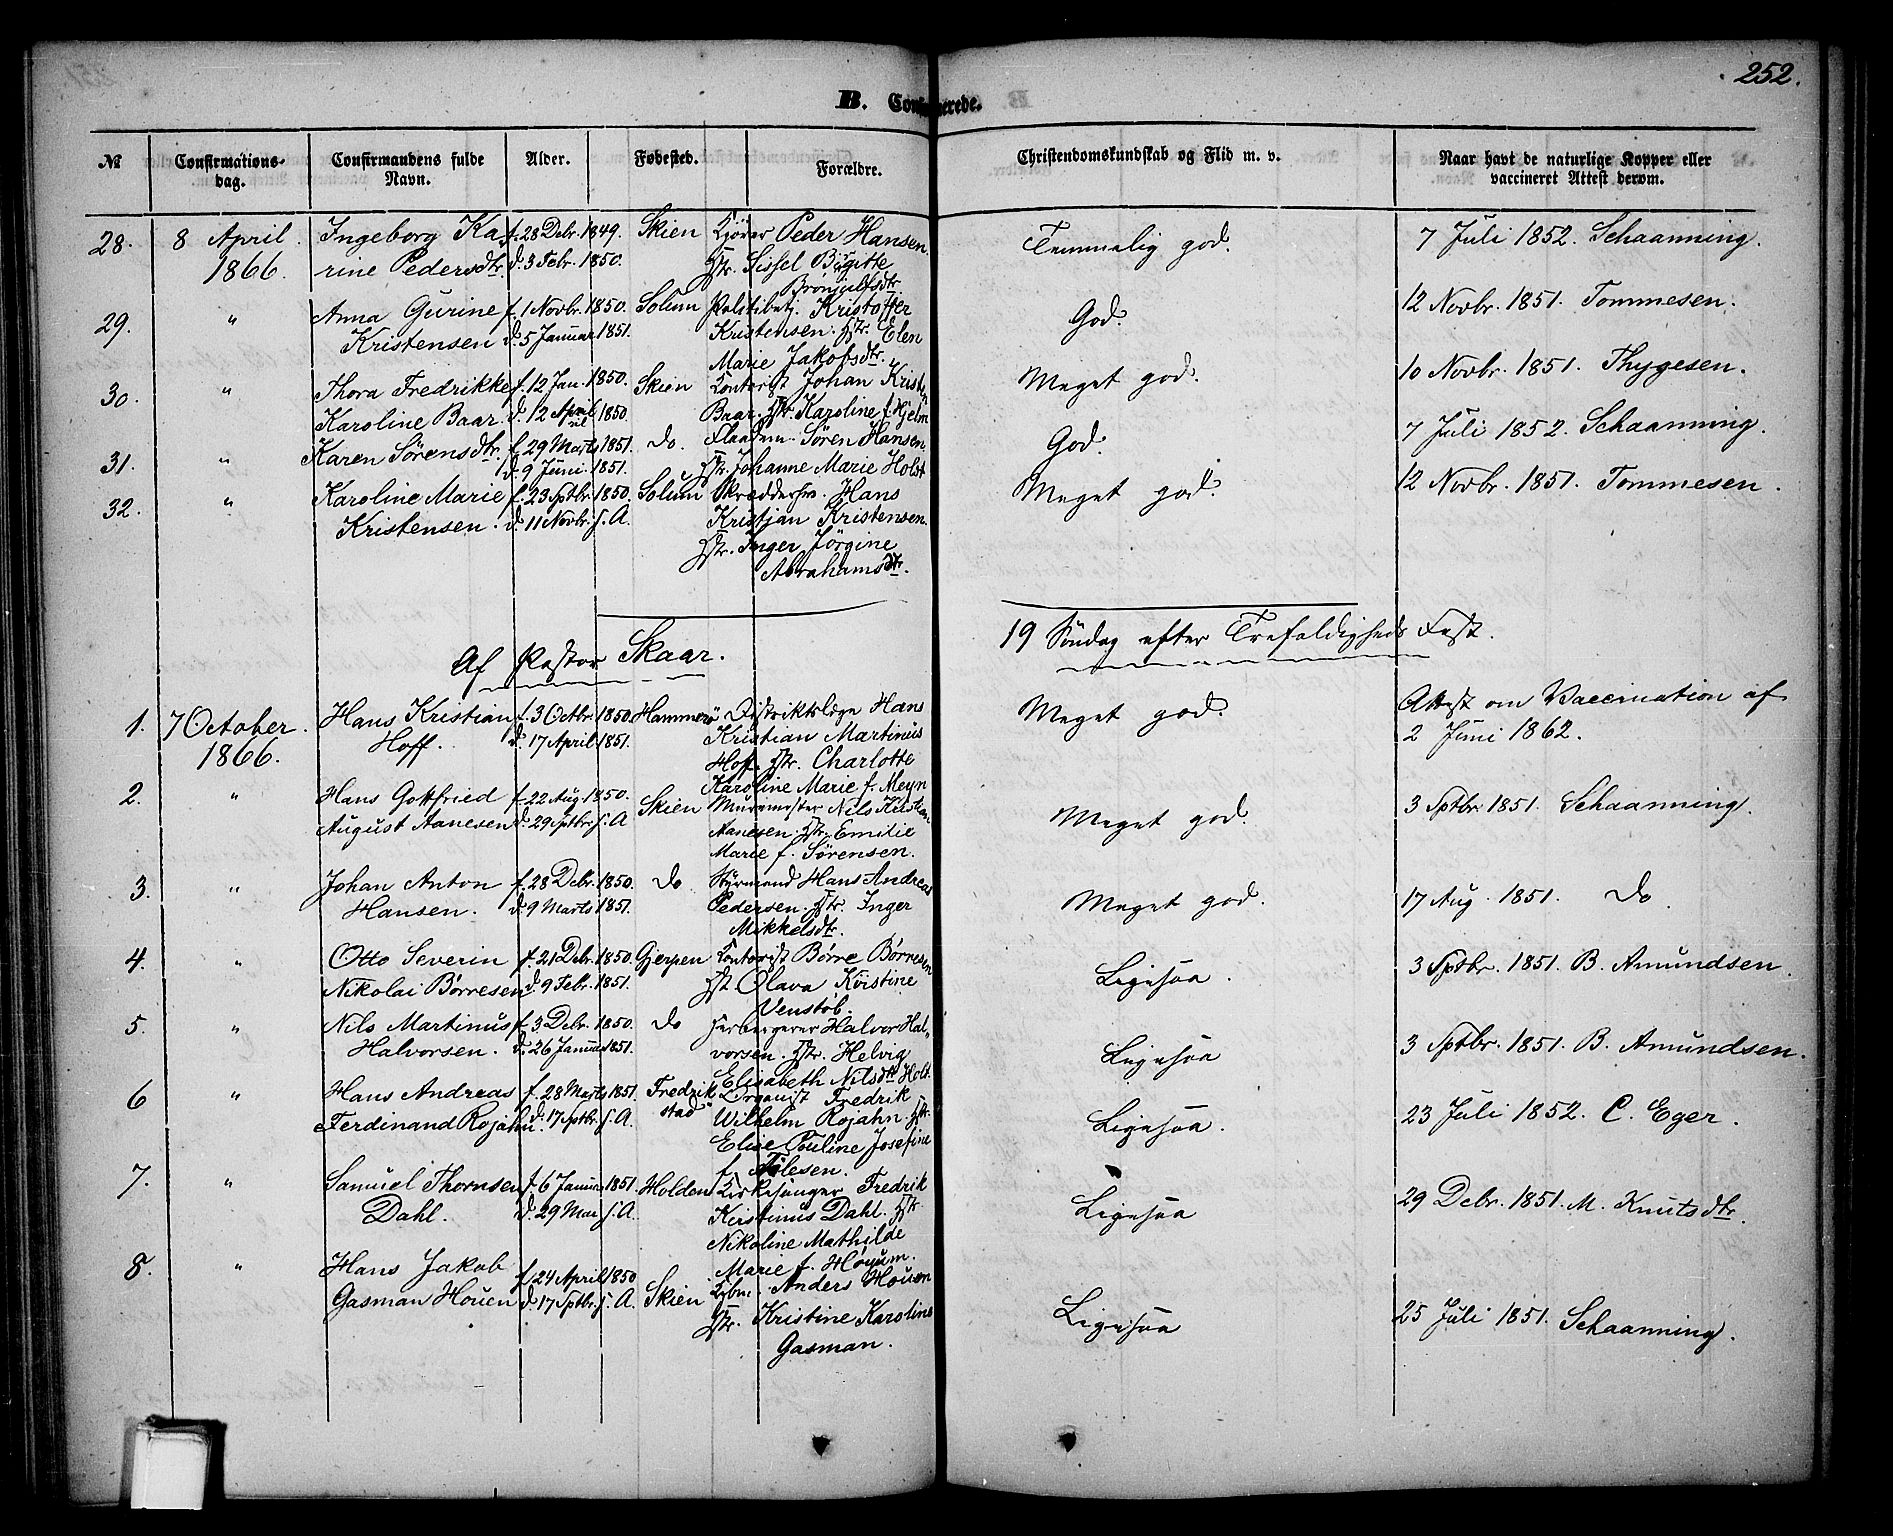 252.
B. Confirmerede.
№ Confirmations-dag. Confirmandens fulde Navn. Alder. Fødested. Forældre. Christendomskundskab og Flid m. v. Naar havt de naturlige Kopper eller vaccineret Attest derom.
28. 8 April Ingeborg Ka- f. 28 Debr. 1849. Skien Kjører Peder Hansen. Temmelig god. 7 Juli 1852. Schaanning.
1866. rine Pedersdtr. d. 3 Febr. 1850. Hstr. Sissel Birgitte
Brønjulfsdtr.
29. " Anna Gurine f. 1 Novbr. 1850. Solum Politibetj. Kristoffer God. 12 Novbr. 1851. Tommesen.
Kristensen d. 5 Januar 1851. Kristensen. Hstr. Elen
Marie Jakobsdtr.
30. " Thora Fredrikke f. 12 Jan. 1850. Skien Kontorist Johan Kristen Meget god. 10 Novbr. 1851. Thygesen.
Karoline Baar. d. 12 April 1850 Baar. Hstr. Karoline f. Hjelm
31. " Karen Sørensdtr. f. 29 Marts 1851. do. Flaadm. Søren Hansen God. 7 Juli 1852. Schaanning.
d. 9 Juni 1851. Hstr. Johanne Marie Holst
32. " Karoline Marie f. 23 Sptbr. 1850. Solum Skræddersv. Hans Meget god. 12 Novbr. 1851. Tommesen.
Kristensen. d. 11 Novbr. s. A. Kristjan Kristensen.
Hstr. Inger Jørgine
Abrahamsdtr.
Af Pastor Skaar. 19 Søndag efter Trefoldigheds Fest.
1. 7 October Hans Kristian f. 3 Octbr. 1850. Hammerø Distriktslæge Hans Meget god. Attest om Vaccination af
1866. Hoff. d. 17 April 1851. Kristian Martinus 2 Juni 1862.
Hoff. Hstr. Charlotte
Karoline Marie f. Meyn
2. " Hans Gottfried f. 22 Aug. 1850. Skien Murmester Nils Kristian Meget god. 3 Sptbr 1851. Schaanning.
August Aanesen d. 29 Sptbr. s. A Aanesen. Hstr. Emilie
Marie f. Sørensen.
3. " Johan Anton f. 28 Debr. 1850. do Styrmand Hans Andreas Meget god. 17 Aug. 1851. do.
Hansen. d. 9 Marts 1851. Pedersen. Hstr. Inger
Mikkelsdtr.
4. " Otto Severin f. 21 Debr. 1850. Gjerpen Kontorist Børre Børresen Ligesaa. 3 Sptbr. 1851. B. Amundsen.
Nikolai Børresen d. 9 Febr. 1851. Hst. Olava Kristine
Venstøb.
5. " Nils Martinus f. 3 Debr. 1850. do Herbergerer Halvor Hal- Ligesaa 3 Sptbr. 1851. B. Amundsen.
Halvorsen. d. 26 Januar 1851. vorsen. Hstr. Helvig
Elisabeth Nilsdtr. Holt.
6 " Hans Andreas f. 28 Marts 1851. Fredrik Organist Fredrik Ligesaa. 23 Juli 1852. C. Eger.
Ferdinand Rojahn d. 17 Sptbr. s. A. stad Wilhelm Rojahn. Hstr.
Elise Pauline Josefine
f.
7. " Samuel Thornsen f. 6 Januar 1851. Holden Kirkesanger Fredrik Ligesaa 29 Debr. 1851. M. Knutsdtr.
Dahl. d. 29 Mar s. A. Kirstinus Dahl. Hstr.
Nikoline Mathilde
Marie f. Høyum.
8. " Hans Jakob f. 24 April 1850 Skien Kjbm. Anders Houen Ligesaa 25 Juli 1851. Schaanning.
Gasman Houen d. 17 Sptbr. s. A. Hstr. Kristine Karoline
Gasman.